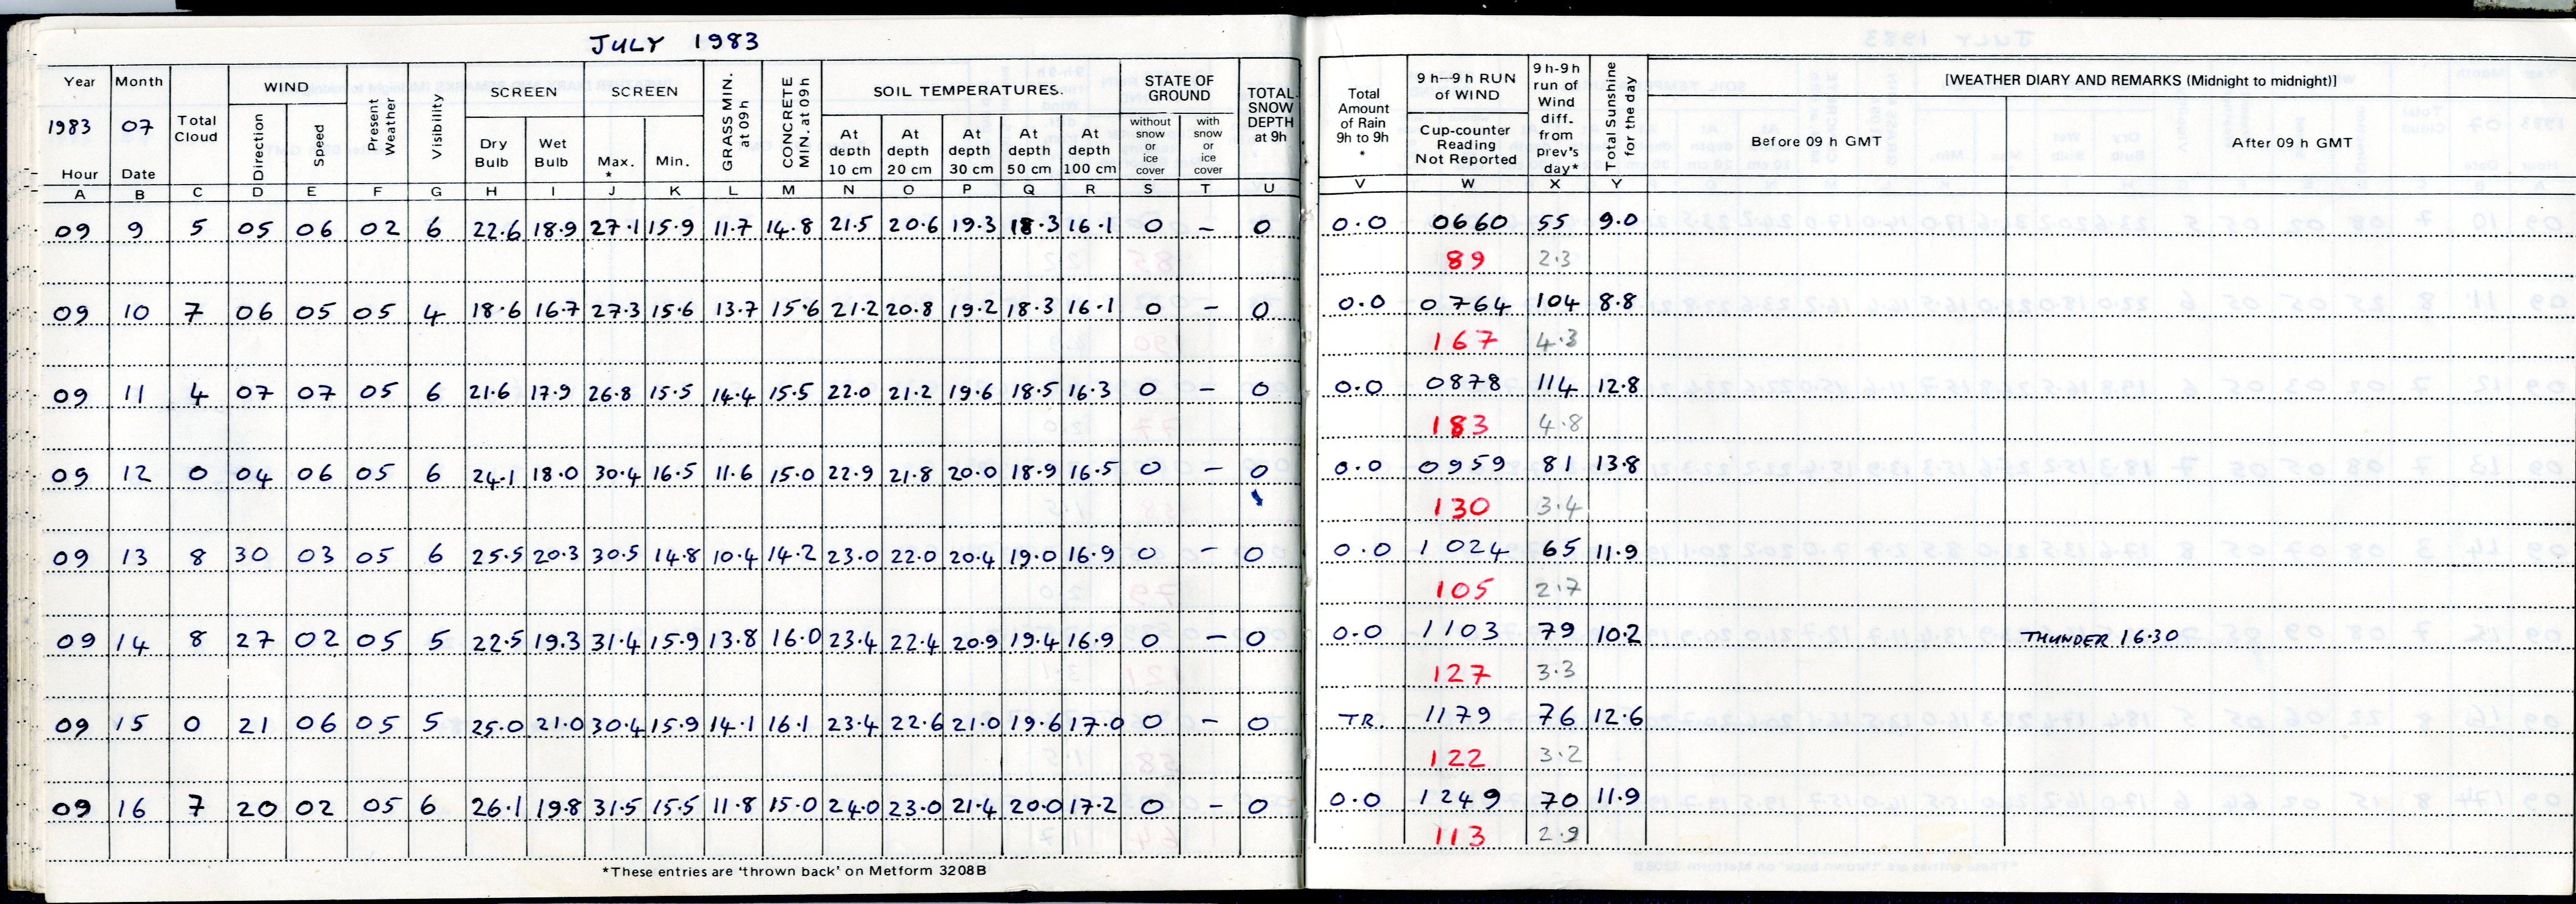 JULY 1983
Year Month Total Cloud WIND Present Weather Visibility SCREEN SCREEN GRASS MIN. at 09h CONCRETE MIN. at 09h SOIL TEMPERATURES. STATE OF GROUND TOTAL SNOW DEPTH at 9h Total Amount of Rain 9h to 9h * 9 h-9h RUN of WIND 9h-9h run of Wind diff. from prev's day* Total Sunshine for the day [WEATHER DIARY AND REMARKS (Midnight to midnight)]
1983 07
Hour Date Direction Speed Dry Bulb Wet Bulb Max. * Min. At depth 10 cm At depth 20 cm At depth 30 cm At depth 50 cm At depth 100 cm without snow or ice cover with snow or ice cover Cup-counter Reading Not Reported Before 09 h GMT After 09 h GMT
A B C D E F G H I J K L M N O P Q R S T U V W X Y
09 9 5 05 06 02 6 22.6 18.9 27.1 15.9 11.7 14.8 21.5 20.6 19.3 18.3 16.1 0 - 0 0.0 0660 55 9.0
89 2.3
09 10 7 06 05 05 4 18.6 16.7 27.3 15.6 13.7 15.6 21.2 20.8 19.2 18.3 16.1 0 - 0 0.0 0764 104 8.8
167 4.3
09 11 4 07 07 05 6 21.6 17.9 26.8 15.5 14.4 15.5 22.0 21.2 19.6 18.5 16.3 0 - 0 0.0 0878 114 12.8
183 4.8
09 12 0 04 06 05 6 24.1 18.0 30.4 16.5 11.6 15.0 22.9 21.8 20.0 18.9 16.5 0 - 0 0.0 0959 81 13.8
130 3.4
09 13 8 30 03 05 6 25.5 20.3 30.5 14.8 10.4 14.2 23.0 22.0 20.4 19.0 16.9 0 - 0 0.0 1024 65 11.9
105 2.7
09 14 8 27 02 05 5 22.5 19.3 31.4 15.9 13.8 16.0 23.4 22.4 20.9 19.4 16.9 0 - 0 0.0 1103 79 10.2 THUNDER 16.30
127 3.3
09 15 0 21 06 05 5 25.0 21.0 30.4 15.9 14.1 16.1 23.4 22.6 21.0 19.6 17.0 0 - 0 TR. 1179 76 12.6
122 3.2
09 16 7 20 02 05 6 26.1 19.8 31.5 15.5 11.8 15.0 24.0 23.0 21.4 20.0 17.2 0 - 0 0.0 1249 70 11.9
113 2.9
*These entries are 'thrown back' on Metform 3208B